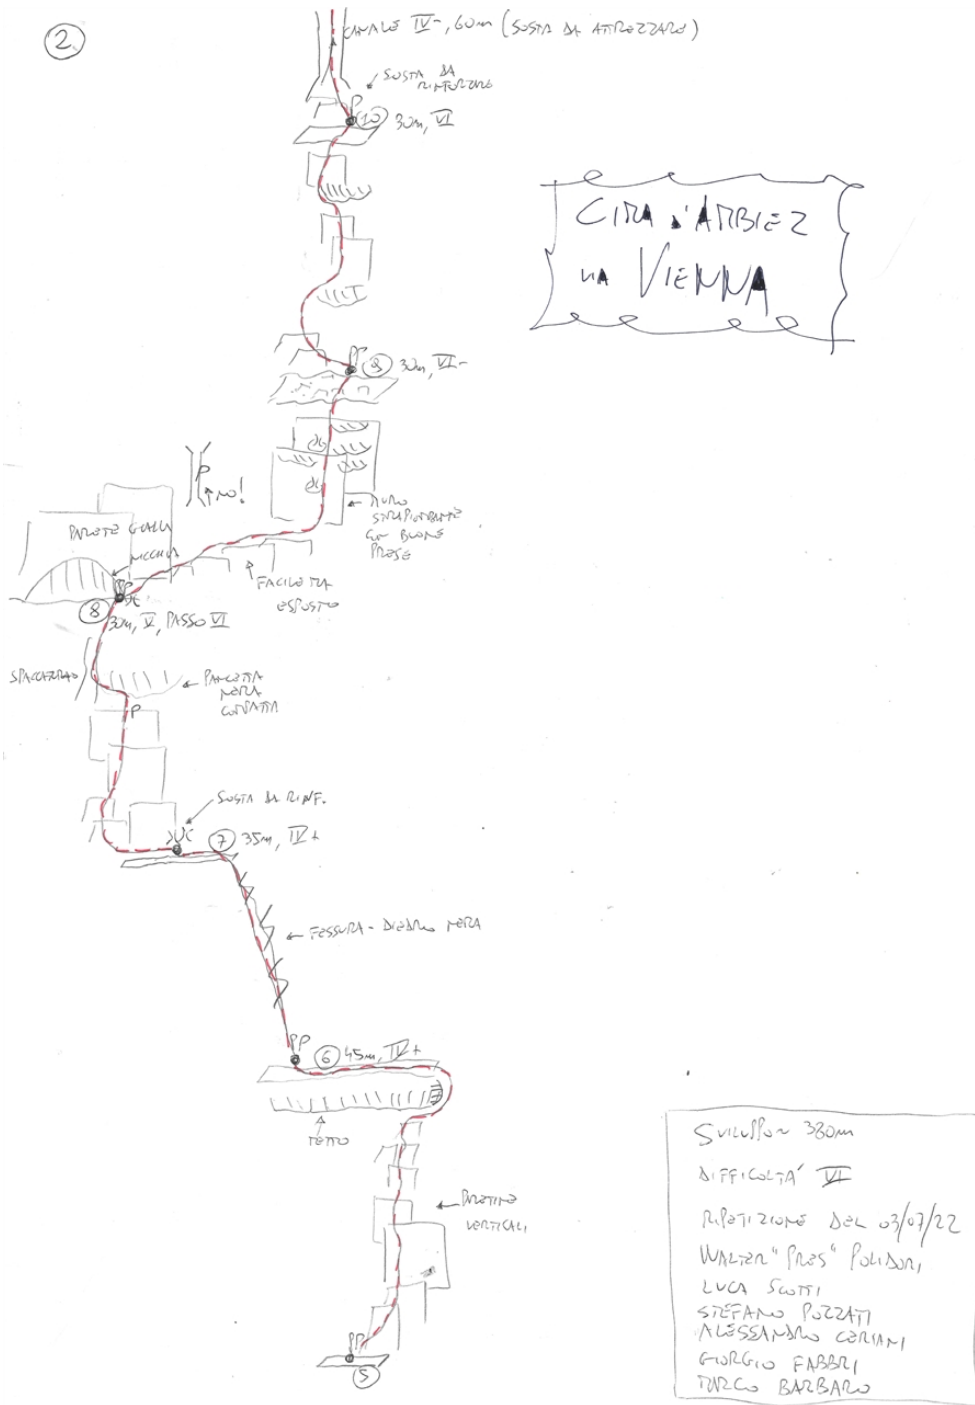 2
CANALE IV-, 60m (SOSTA DA ATTREZZARE)
SOSTA DA
RINFORZARE
P
10 30m, VI
CIMA D'AMBIEZ
VIA VIENNA
PP
9 30m, VI-
P
NO!
MURO
STRAPIOMBANTE
CON BUONE
PRESE
PARETE GIALLA
NICCHIA
FACILE MA
ESPOSTO
8
30m, V, PASSO VI
SPACCATURA
PANCETTA
NERA
COMPATTA
P
SOSTA DA RINF.
7 35m, IV+
FESSURA-DIEDRO NERA
PP
6 45m, IV+
TETTO
PARETINE
VERTICALI
PP
5
SVILUPPO 380m
DIFFICOLTA' VI
RIPETIZIONE DEL 03/07/22
WALTER "PRES" POLIDORI
LUCA SCOTTI
STEFANO POZZATI
ALESSANDRO CERIANI
GIORGIO FABBRI
MARCO BARBARO